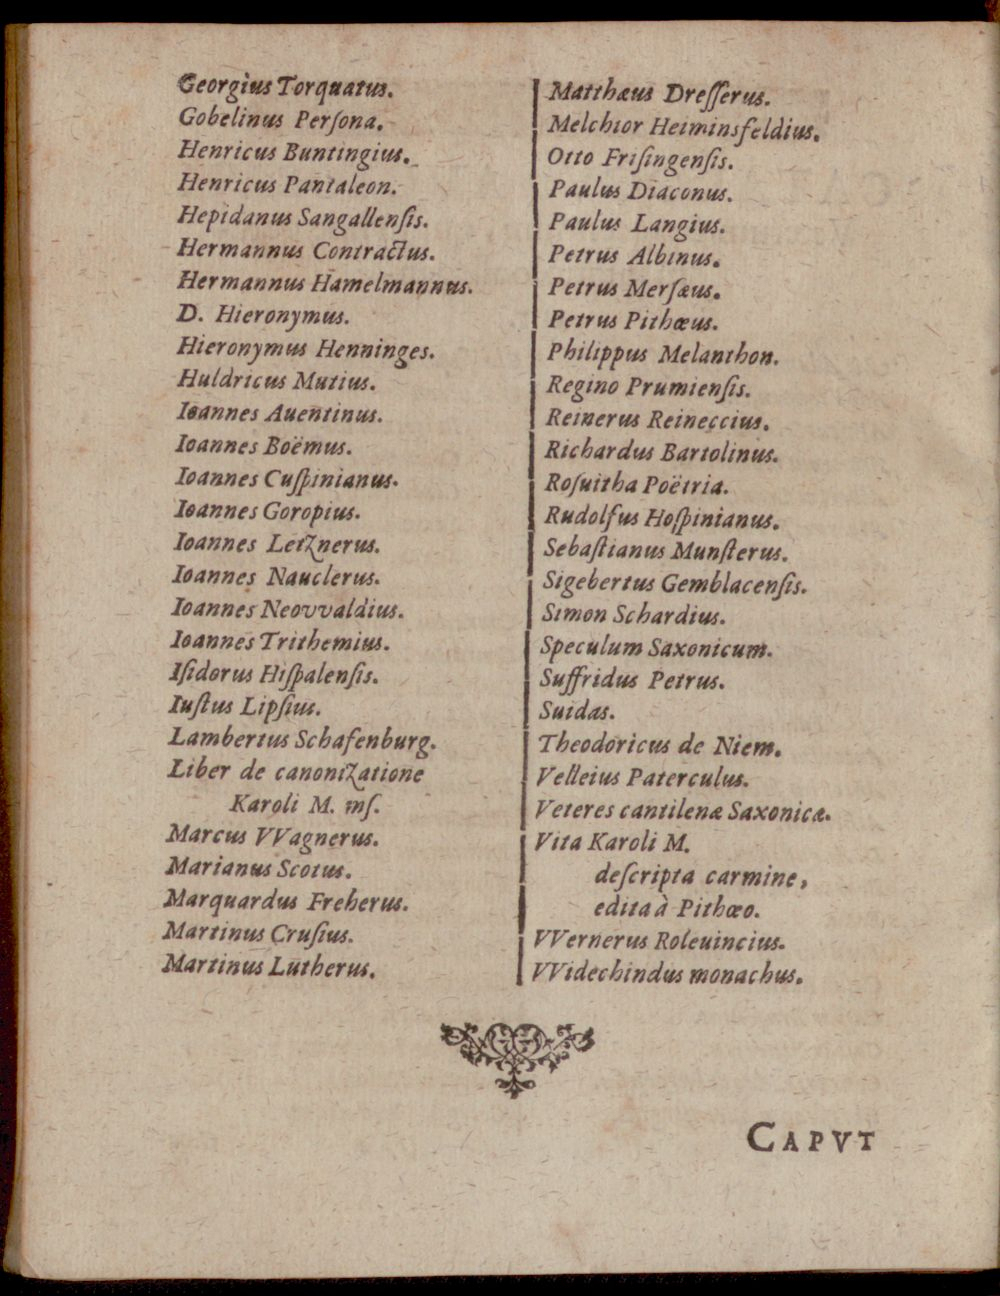 Georgius Torquatus.
Gobelinus Perſona.
Henricus Buntingius.
Henricus Pantaleon.
Hepidanus Sangallenſis.
Hermannus Contractus.
Hermannus Hamelmannus.
D. Hieronymus.
Hieronymus Henninges.
Huldricus Mutius.
Ioannes Auentinus.
Ioannes Boëmus.
Ioannes Cuſpinianus.
Ioannes Goropius.
Ioannes Letznerus.
Ioannes Nauclerus.
Ioannes Neovvaldius.
Ioannes Trithemius.
Iſidorus Hiſpalenſis.
Iuſtus Lipſius.
Lambertus Schafenburg.
Liber de canonizatione
Karoli M. mſ.
Marcus VVagnerus.
Marianus Scotus.
Marquardus Freherus.
Martinus Cruſius.
Martinus Lutherus.
Matthæus Dreſſerus.
Melchior Heiminsfeldius.
Otto Friſingenſis.
Paulus Diaconus.
Paulus Langius.
Petrus Albinus.
Petrus Merſæus.
Petrus Pithœus.
Philippus Melanthon.
Regino Prumienſis.
Reinerus Reineccius.
Richardus Bartolinus.
Roſuitha Poëtria.
Rudolfus Hoſpinianus.
Sebaſtianus Munſterus.
Sigebertus Gemblacenſis.
Simon Schardius.
Speculum Saxonicum.
Suffridus Petrus.
Suidas.
Theodoricus de Niem.
Velleius Paterculus.
Veteres cantilenæ Saxonicæ.
Vita Karoli M.
deſcripta carmine,
edita à Pithœo.
VVernerus Roleuincius.
VVidechindus monachus.
CAPVT